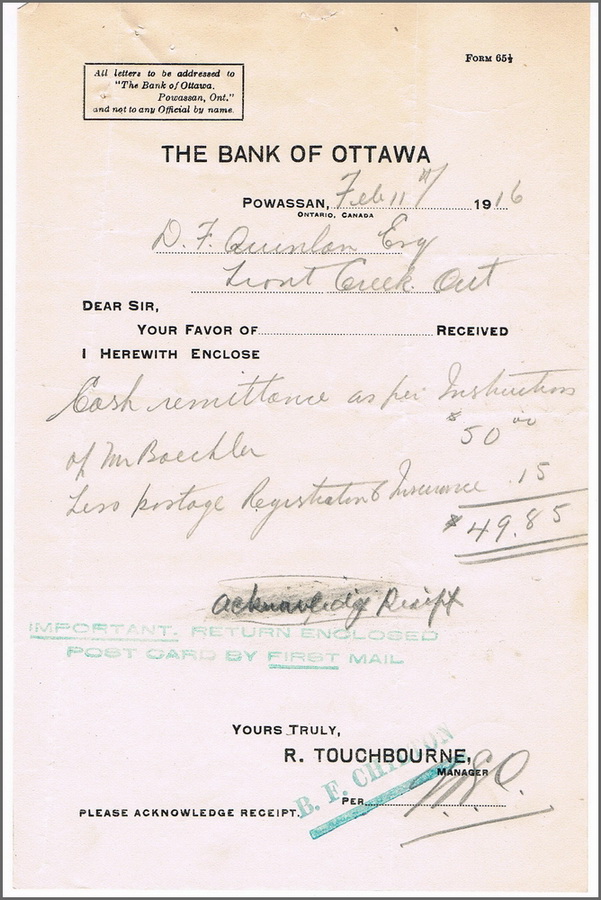 FORM 65½
All letters to be addressed to
"The Bank of Ottawa.
Powassan, Ont."
and not to any Official by name.
THE BANK OF OTTAWA
POWASSAN, Feb 11th 1916
ONTARIO, CANADA
D. F. Quinlan Esq
Trout Creek Ont
DEAR SIR,
YOUR FAVOR OF RECEIVED
I HEREWITH ENCLOSE
Cash remittance as per Instructions
$50.00
of Mr Boechler
Less postage Registration & Insurance .15
$49.85
Acknowledge Receipt
IMPORTANT. RETURN ENCLOSED
POST CARD BY FIRST MAIL
YOURS TRULY,
R. TOUCHBOURNE,
MANAGER
B. F.
PER
PLEASE ACKNOWLEDGE RECEIPT.